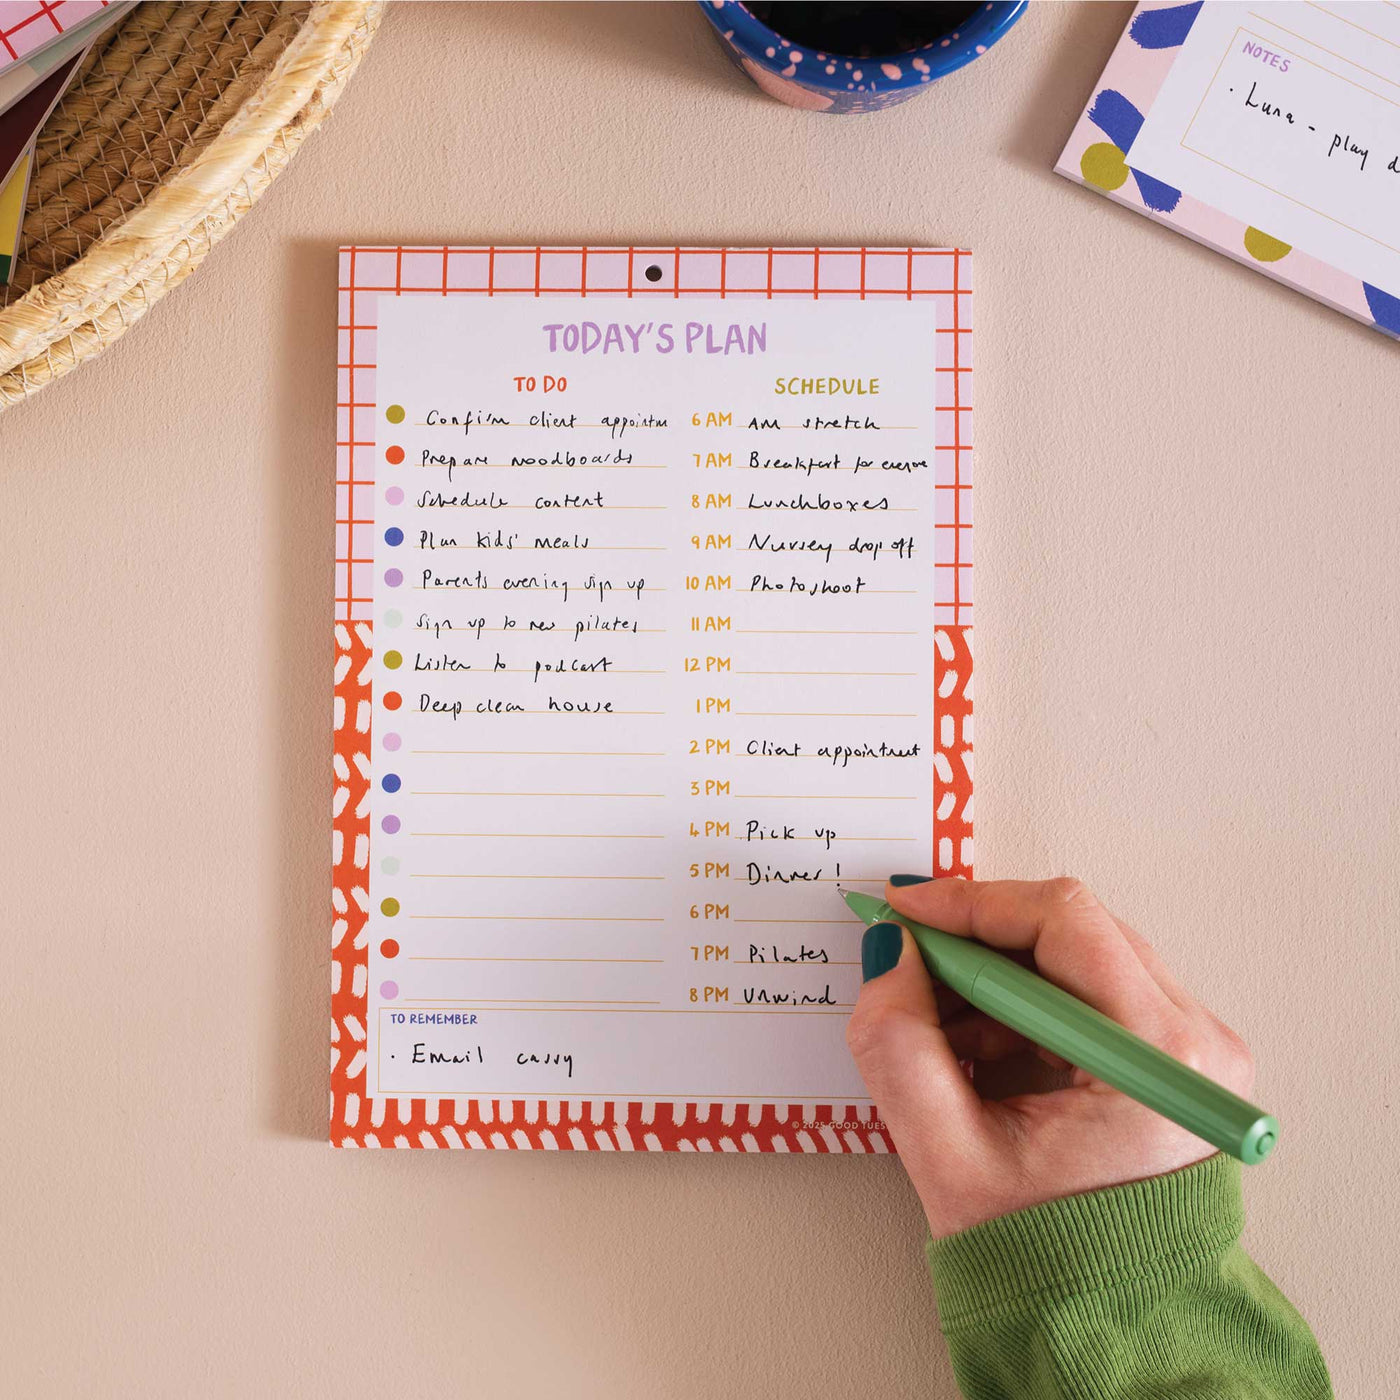 NOTES
· Luna - play d
TODAY'S PLAN
TO DO
Confirm client appointm
Prepare moodboards
Schedule content
Plan kids' meals
Parents evening sign up
Sign up to new pilates
Listen to podcast
Deep clean house
SCHEDULE
6 AM AM stretch
7 AM Breakfast for everyone
8 AM Lunchboxes
9 AM Nursey drop off
10 AM Photoshoot
11 AM
12 PM
1 PM
2 PM Client appointment
3 PM
4 PM Pick up
5 PM Dinner!
6 PM
7 PM Pilates
8 PM Unwind
TO REMEMBER
· Email cassy
© 2025 GOOD TUES